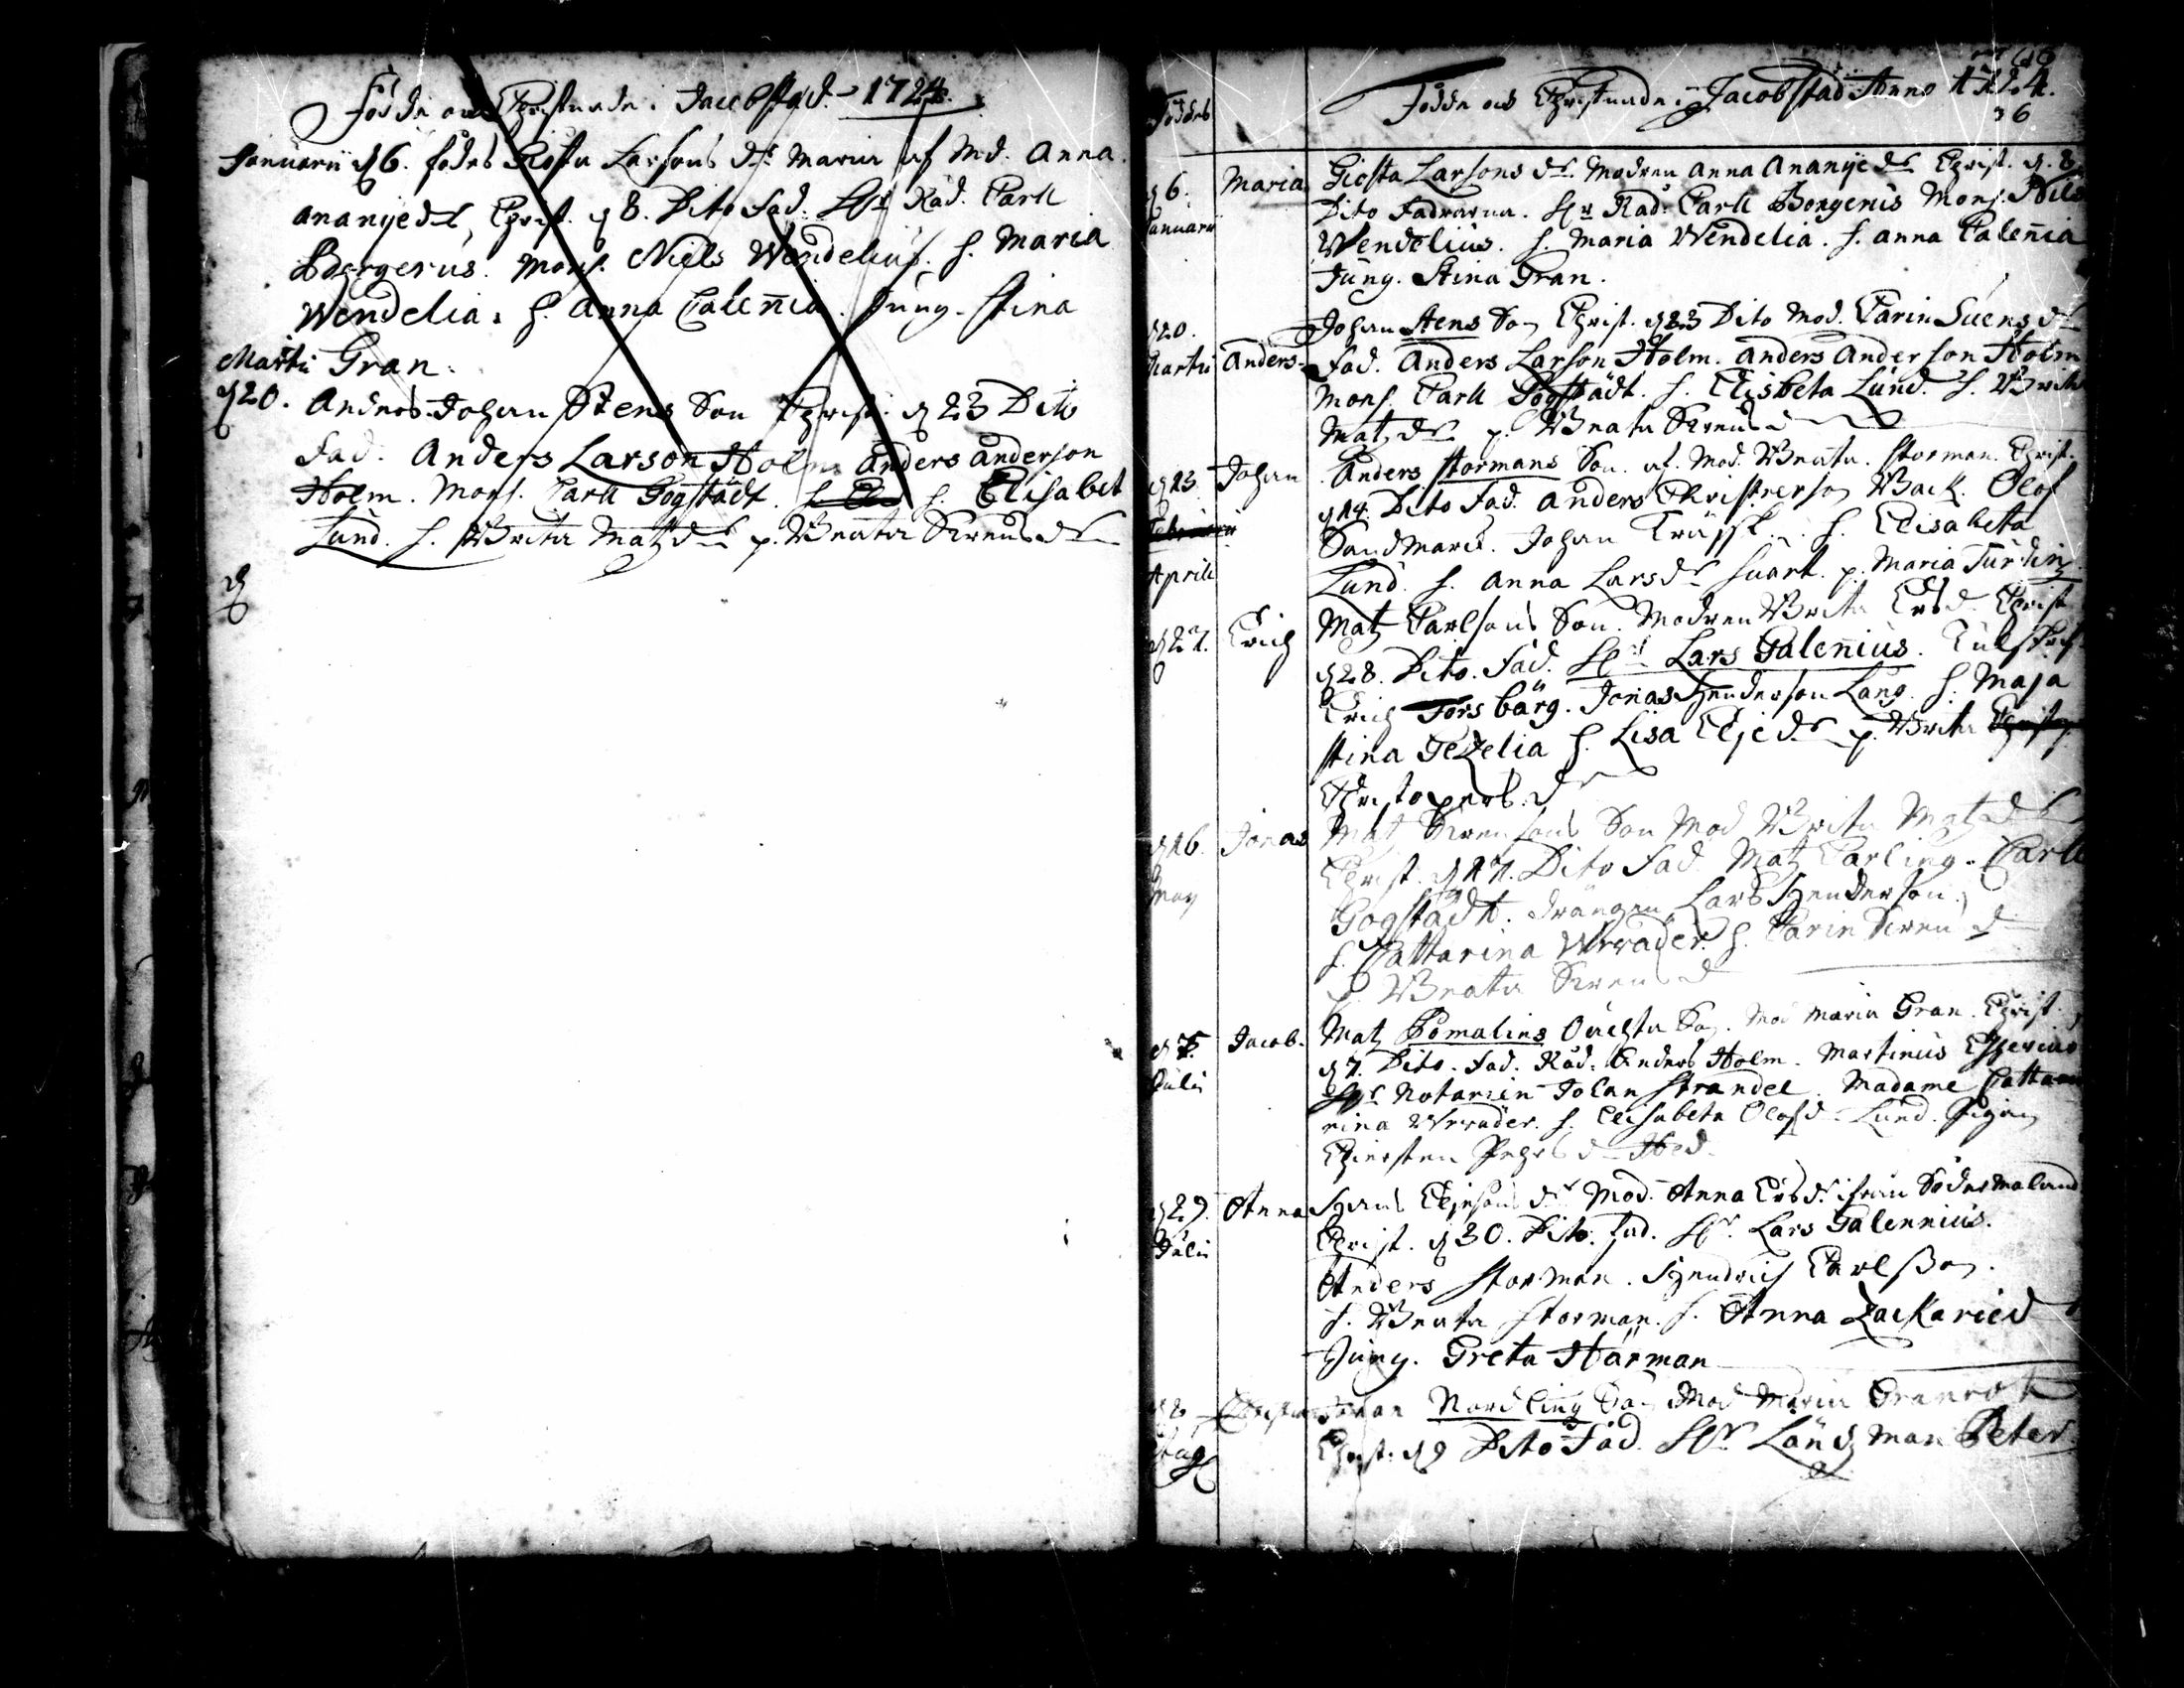 Födde och Christnade i Jacobstad. 1724.
Januarii d 6. födes Giösta Larsons dr Maria af Md. Anna
Ananyedr, Christ. d 8. Dito Fad. Hr Råd. Carll
Borgerus. Mons. Niels Wendelius. h. Maria
Wendelia. h. Anna Calenia. Jung. Stina
Martii Gran.
d 20. Anders Johan Stens Son Christ. d 23 Dito
Fad. Anders Larson Holm Anders Anderson
Holm. Mons. Carll Gogstädt. h. Elisabet
Lund. h. Brita Matzdr p. Beata Svensdr
d
Föddes
Födde och Christnade i Jacobstad Anno 1724.
36
d 6. Januarii Maria Giösta Larsons dr. Modren Anna Ananyedr Christ. d. 8
Dito Fadrarna. Hr Råd. Carll Borgerus Mons. Nils
Wendelius. h. Maria Wendelia. h. Anna Calenia
Jung. Stina Gran.
d 20. Martii Anders Johan Stens Son Christ. d 23 Dito Mod. Carin Suensdr
Fad. Anders Larson Holm. Anders Anderson Holm
Mons. Carll Gogstädt. h. Elisbeta Lund. h. Brita
Matzdr p. Beata Svensdr
d 13. Februarii Aprili Johan Anders Stormans Son. af. Mod. Beata Storman. Christ.
d 14. Dito Fad. Anders Christerson Back. Olof
Sandmarck. Johan Träsk. h. Elisabeta
Lund. h. Anna Larsdr Suart. p. Maria Turdin
d 27. Erich Matz Carlsons Son. Modren Brita Ersdr Christ
d 28. Dito. Fad. Hr Lars Galenius.
Erich Forsbärg. Jonas Henderson Lang. h. Maja
Stina Gezelia h. Lisa Eljedr p. Brita
Christopersdr
d 16. May Jonas Matz Svensons Son Mod Brita Matzdr
Christ. d 17. Dito Fad. Matz Carling. Carll
Gogstädt. drängen Lars Henderson.
h. Cattarina Wrader. h. Carin Svensdr
p. Beata Svensdr
d 5. Julii Jacob. Matz Pomalins Son. Mod Maria Gran. Christ.
d 7. Dito. Fad. Råd. Anders Holm. Martinus
Hr Notarien Johan Strandel. Madame Catta
rina Wrader. h. Elisabeta Olofsdr Lund. Pigan
Chiersten Pehrsdr Hed.
d 29. Julii Anna Hans Eljesons dr Mod. Anna Ersdr ifrån Södermaland
Christ. d 30. Dito. Fad. Hr. Lars Galennius.
Anders Storman. Hendrich Carlsson.
h. Beata Storman. h. Anna Zackariedr
Jung. Greta Härman
d 8 Aug Christian Johan Nordling Son Mod Maria Granrot
Christ. d 9 Dito Fad. HrLändzman Peter